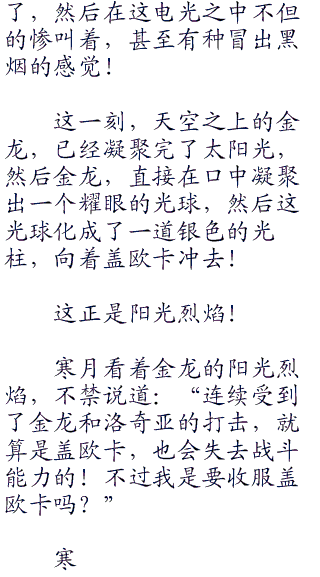 了，然后在这电光之中不但
的惨叫着，甚至有种冒出黑
烟的感觉！
这一刻，天空之上的金
龙，已经凝聚完了太阳光，
然后金龙，直接在口中凝聚
出一个耀眼的光球，然后这
光球化成了一道银色的光
柱，向着盖欧卡冲去！
这正是阳光烈焰！
寒月看着金龙的阳光烈
焰，不禁说道：“连续受到
了金龙和洛奇亚的打击，就
算是盖欧卡，也会失去战斗
能力的！不过我是要收服盖
欧卡吗？”
寒